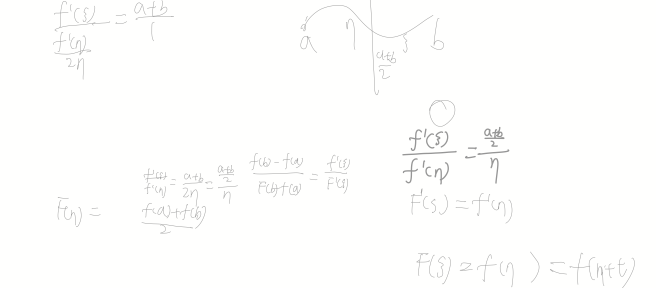 f'(ξ) / (f'(η) / 2η) = (a+b) / 1
a η (a+b)/2 ξ b
f'(ξ)/f'(η) = (a+b)/2η = ((a+b)/2)/η
(f(b) - f(a)) / (F(b) - f(a)) = f'(ξ)/F'(ξ)
F(η) = (f(a) + f(b))/2
f'(ξ)/f'(η) = ((a+b)/2)/η
F'(ξ) = f'(η)
F(ξ) = f(η ) = f(η+t)